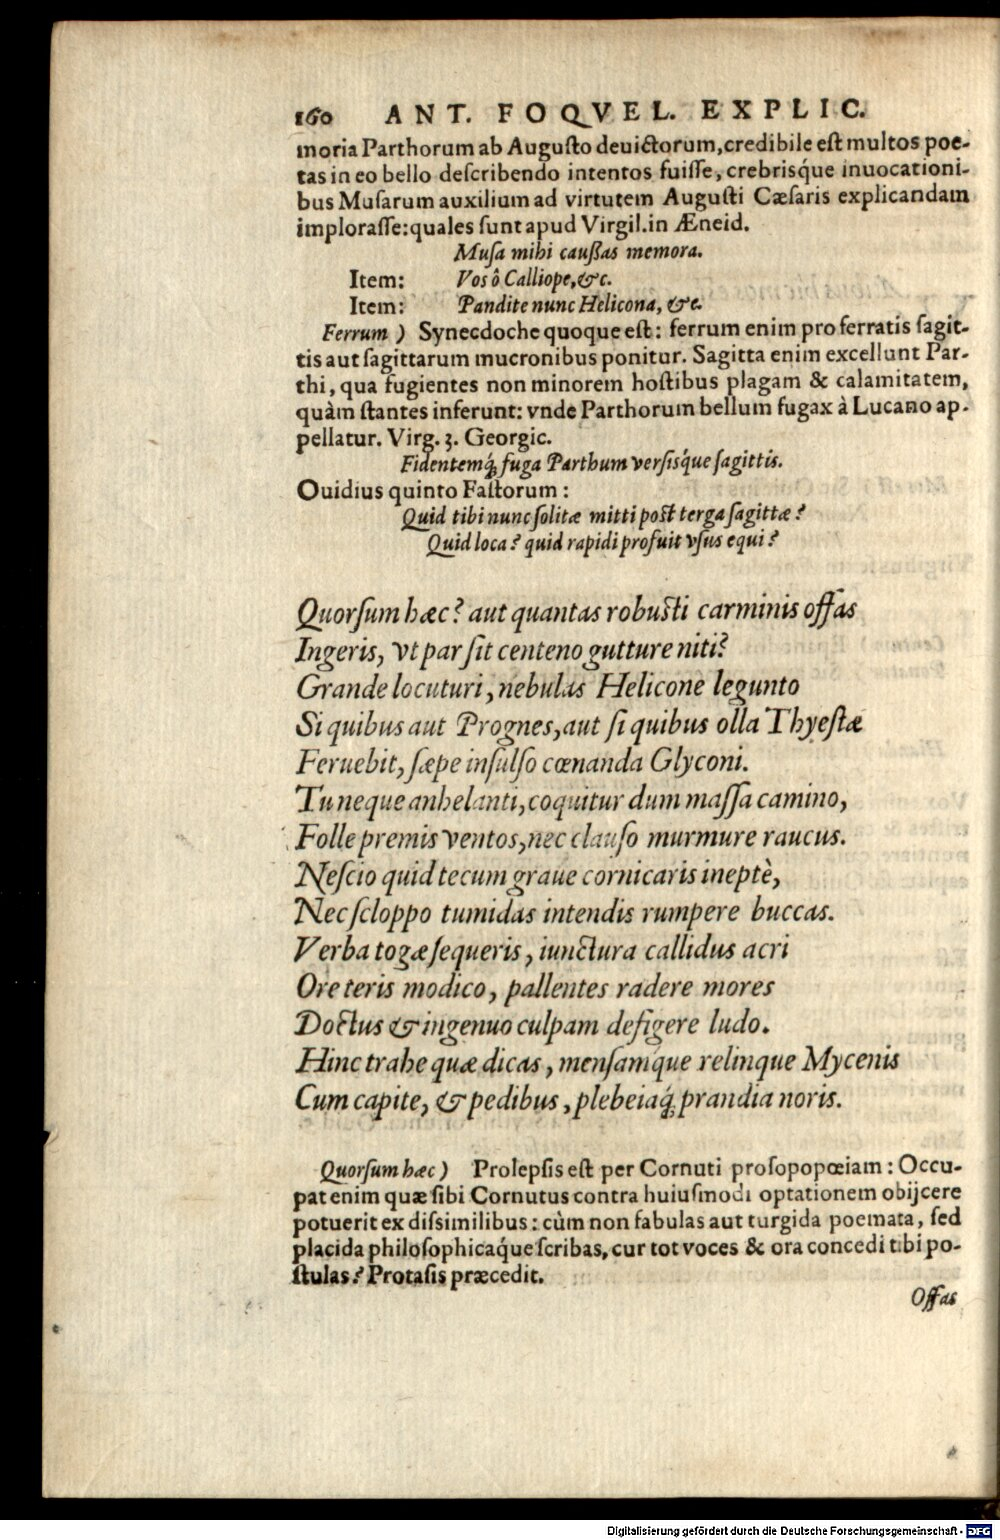 160 ANT. FOQVEL. EXPLIC.
moria Parthorum ab Augusto deuictorum, credibile est multos poe-
tas in eo bello describendo intentos fuisse, crebrisq́ue inuocationi-
bus Musarum auxilium ad virtutem Augusti Cæsaris explicandam
implorasse: quales sunt apud Virgil. in Æneid.
Musa mihi caussas memora.
Item: Vos ô Calliope, &c.
Item: Pandite nunc Helicona, &c.
Ferrum ) Synecdoche quoque est: ferrum enim pro ferratis sagit-
tis aut sagittarum mucronibus ponitur. Sagitta enim excellunt Par-
thi, qua fugientes non minorem hostibus plagam & calamitatem,
quàm stantes inferunt: vnde Parthorum bellum fugax à Lucano ap-
pellatur. Virg. 3. Georgic.
Fidentemq́; fuga Parthum versisq́ue sagittis.
Ouidius quinto Fastorum:
Quid tibi nunc solitæ mitti post terga sagittæ?
Quid loca? quid rapidi profuit vsus equi?
Quorsum hæc? aut quantas robusti carminis offas
Ingeris, vt par sit centeno gutture niti?
Grande locuturi, nebulas Helicone legunto
Si quibus aut Prognes, aut si quibus olla Thyestæ
Feruebit, sæpe insulso cœnanda Glyconi.
Tu neque anhelanti, coquitur dum massa camino,
Folle premis ventos, nec clauso murmure raucus.
Nescio quid tecum graue cornicaris ineptè,
Nec scloppo tumidas intendis rumpere buccas.
Verba togæ sequeris, iunctura callidus acri
Ore teris modico, pallentes radere mores
Doctus & ingenuo culpam defigere ludo.
Hinc trahe quæ dicas, mensamq́ue relinque Mycenis
Cum capite, & pedibus, plebeiaq́; prandia noris.
Quorsum hæc ) Prolepsis est per Cornuti prosopopœiam: Occu-
pat enim quæ sibi Cornutus contra huiusmodi optationem obijcere
potuerit ex dissimilibus: cùm non fabulas aut turgida poemata, sed
placida philosophicaq́ue scribas, cur tot voces & ora concedi tibi po-
stulas? Protasis præcedit.
Offas
Digitalisierung gefördert durch die Deutsche Forschungsgemeinschaft - DFG